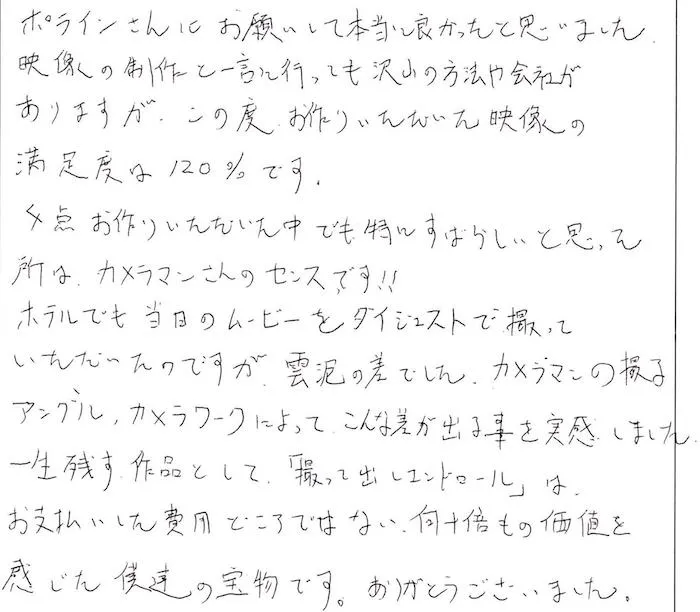 ポラインさんにお願いして本当に良かったと思いました.
映像の制作と一言に行っても沢山の方法や会社が
ありますが、この度、お作りいただいた映像の
満足度は120%です.
4点お作りいただいた中でも特にすばらしいと思った
所は、カメラマンさんのセンスです!!
ホテルでも当日のムービーをダイジェストで撮って
いただいたのですが、雲泥の差でした。カメラマンの撮る
アングル,カメラワークによって、こんな差が出る事を実感しました.
一生残す作品として、「撮って出しエンドロール」は、
お支払いした費用どころではない、何十倍もの価値を
感じた僕達の宝物です。ありがとうございました。